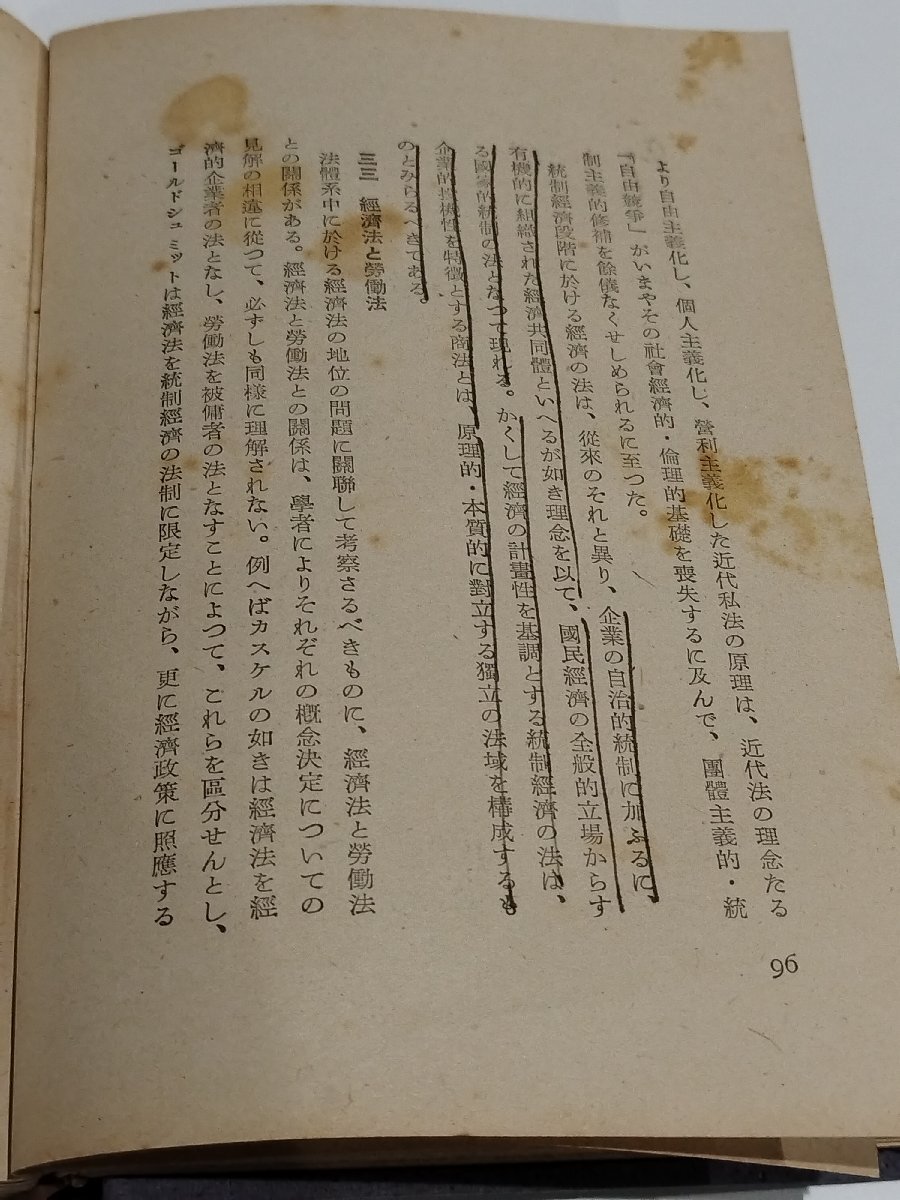 より自由主義化し、個人主義化し、營利主義化した近代私法の原理は、近代法の理念たる
「自由競爭」がいまやその社會經濟的・倫理的基礎を喪失するに及んで、團體主義的・統
制主義的修補を餘儀なくせしめられるに至つた。
統制經濟段階に於ける經濟の法は、從來のそれと異り、企業の自治的統制に加ふるに、
有機的に組織された經濟共同體といへるが如き理念を以て、國民經濟の全般的立場からす
る國家的統制の法となつて現れる。かくして經濟の計畫性を基調とする統制經濟の法は、
企業的投機性を特徵とする商法とは、原理的・本質的に對立する獨立の法域を構成するも
のとみらるべきである。
三三 經濟法と勞働法
法體系中に於ける經濟法の地位の問題に關聯して考察さるべきものに、經濟法と勞働法
との關係がある。經濟法と勞働法との關係は、學者によりそれぞれの概念決定についての
見解の相違に從つて、必ずしも同樣に理解されない。例へばカスケルの如きは經濟法を經
濟的企業者の法となし、勞働法を被傭者の法となすことによつて、これらを區分せんとし、
ゴールドシュミットは經濟法を統制經濟の法制に限定しながら、更に經濟政策に照應する
96